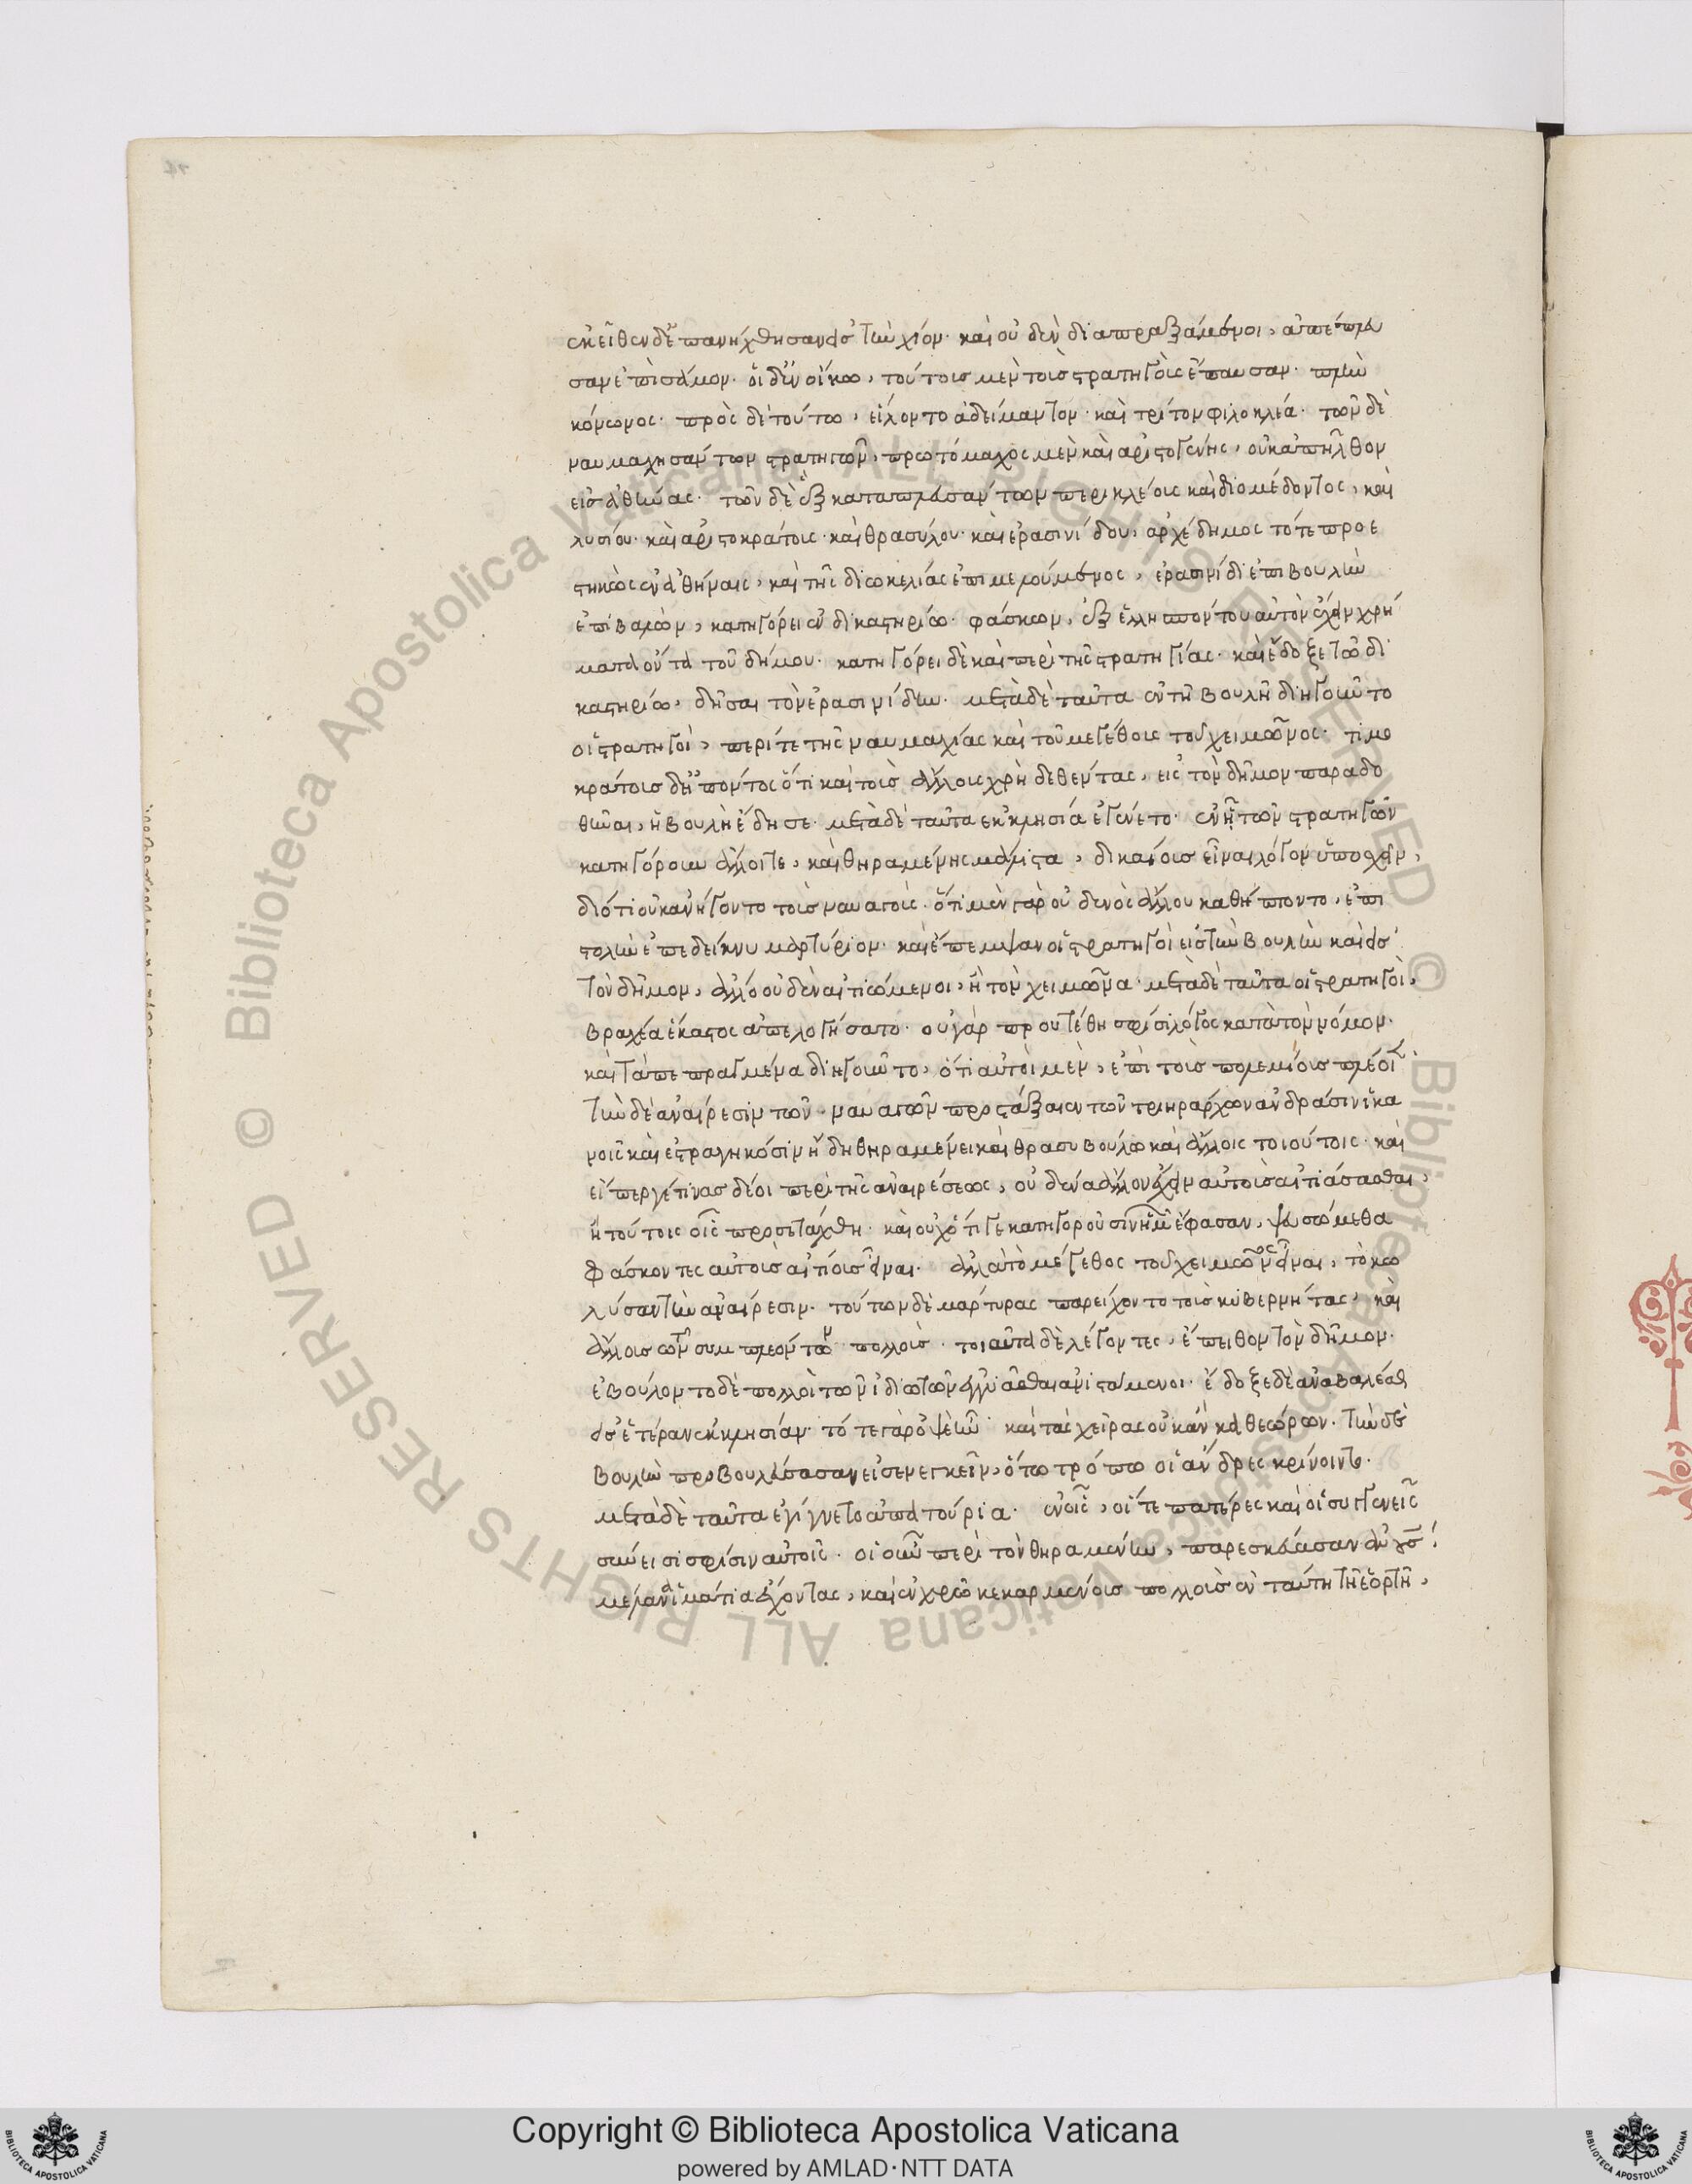 ἐκεῖθεν δ' ἐπανήχθησαν εἰς τὴν χίον· καὶ οὐδὲν διαπραξάμενοι, ἀπέπλευ
σαν ἐπὶ σάμον. οἱ δ' ἐν οἴκω, τούτοις μὲν τοῖς στρατηγοῖς ἔπαυσαν· πλὴν
κόνωνος· πρὸς δὲ τούτω, εἵλοντο ἀδείμαντον· καὶ τρίτον φιλοκλέα. τῶν δὲ
ναυμαχησάντων στρατηγῶν, πρωτόμαχος μὲν καὶ ἀριστογένης, οὐκ ἀπῆλθον
εἰς ἀθήνας· τῶν δὲ ἓξ καταπλευσάντων περικλέους καὶ διομέδοντος, καὶ
λυσίου· καὶ ἀριστοκράτους· καὶ θρασύλου· καὶ ἐρασινίδου, ἀρχέδημος τότε προε
στηκὼς ἐν ἀθήναις, καὶ τῆς διωκελίας ἐπιμελούμενος, ἐρασινίδι ἐπιβουλὴν
ἐπιβαλὼν, κατηγόρει ἐν δικαστηρίω· φάσκων, ἐξ ἑλλησπόντου αὐτὸν ἔχειν χρή
ματα ὄντα τοῦ δήμου· κατηγόρει δὲ καὶ περὶ τῆς στρατηγίας· καὶ ἔδοξε τῶ δι
καστηρίω, δῆσαι τὸν ἐρασινίδην. μετὰ δὲ ταῦτα ἐν τῆ βουλῆ διηγοῦντο
οἱ στρατηγοὶ, περί τε τῆς ναυμαχίας καὶ τοῦ μεγέθους τοῦ χειμῶνος· τιμο
κράτους δ' εἰπόντος ὅτι καὶ τοὺς ἄλλους χρὴ δεθέντας, εἰς τὸν δῆμον παραδο
θῆναι, ἡ βουλὴ ἔδησε. μετὰ δὲ ταῦτα ἐκκλησία ἐγένετο· ἐν ἧ τῶν στρατηγῶν
κατηγόρουν ἄλλοι τε, καὶ θηραμένης μάλιστα, δικαίους εἶναι λόγον ὑποσχεῖν,
διότι οὐκ ἀνήγοντο τοὺς ναυαγούς. ὅτι μὲν γὰρ οὐδενὸς ἄλλου καθήπτοντο, ἐπι
στολὴν ἐπεδείκνυ μαρτύριον· καὶ ἔπεμψαν οἱ στρατηγοὶ εἰς τὴν βουλὴν καὶ εἰς
τὸν δῆμον, ἄλλο οὐδὲν αἰτιώμενοι, ἢ τὸν χειμῶνα. μετὰ δὲ ταῦτα οἱ στρατηγοὶ,
βραχέα ἕκαστος ἀπελογήσατο· οὐ γὰρ προυτέθη σφίσι λόγος κατὰ τὸν νόμον.
καὶ τὰ πεπραγμένα διηγοῦντο, ὅτι αὐτοὶ μὲν, ἐπὶ τοὺς πολεμίους πλέοιεν
τὴν δὲ ἀναίρεσιν τῶν ναυαγῶν προστάξαιεν τῶν τριηράρχων ἀνδράσιν ἱκα
νοῖς καὶ ἐστρατηγηκόσιν ἤδη θηραμένει καὶ θρασυβούλω καὶ ἄλλοις τοιούτοις· καὶ
εἴπερ γέ τινας δέοι περὶ τῆς ἀναιρέσεως, οὐδένα ἄλλον ἔχειν αὐτοὺς αἰτιάσασθαι,
ἢ τούτοις οἷς προσετάχθη· καὶ οὐχ ὅτι γε κατηγοροῦσιν ἡμῶν ἔφασαν, ψευσόμεθα
φάσκοντες αὐτοὺς αἰτίους εἶναι· ἀλλὰ τὸ μέγεθος τοῦ χειμῶνος εἶναι, τὸ κω
λύσαν τὴν ἀναίρεσιν. τούτων δὲ μάρτυρας παρείχοντο τοὺς κυβερνήτας, καὶ
ἄλλους τῶν συμπλεόντων πολλοὺς. τοιαῦτα δὲ λέγοντες, ἔπειθον τὸν δῆμον.
ἐβούλοντο δὲ πολλοὶ τῶν ἰδιωτῶν ἐγγυᾶσθαι ἀνιστάμενοι. ἔδοξε δὲ ἀναβαλέσθαι
εἰς ἑτέραν ἐκκλησίαν· τότε γὰρ ὀψὲ ἦν· καὶ τὰς χεῖρας οὐκ ἂν καθεώρων· τὴν δὲ
βουλὴν προβουλεύσασαν εἰσενεγκεῖν, ὅτω τρόπω οἱ ἄνδρες κρίνοιντο.
μετὰ δὲ ταῦτα ἐγίγνετο ἀπατούρια· ἐν οἷς, οἵ τε πατέρες καὶ οἱ συγγενεῖς
σύνεισι σφίσιν αὐτοῖς. οἱ οὖν περὶ τὸν θηραμένην, παρεσκεύασαν ἀν̅ο̅υ̅ς
μέλανα ἱμάτια ἔχοντας, καὶ ἐν χρῶ κεκαρμένους πολλοὺς ἐν ταύτη τῆ ἑορτῆ,
Copyright © Biblioteca Apostolica Vaticana
powered by AMLAD·NTT DATA